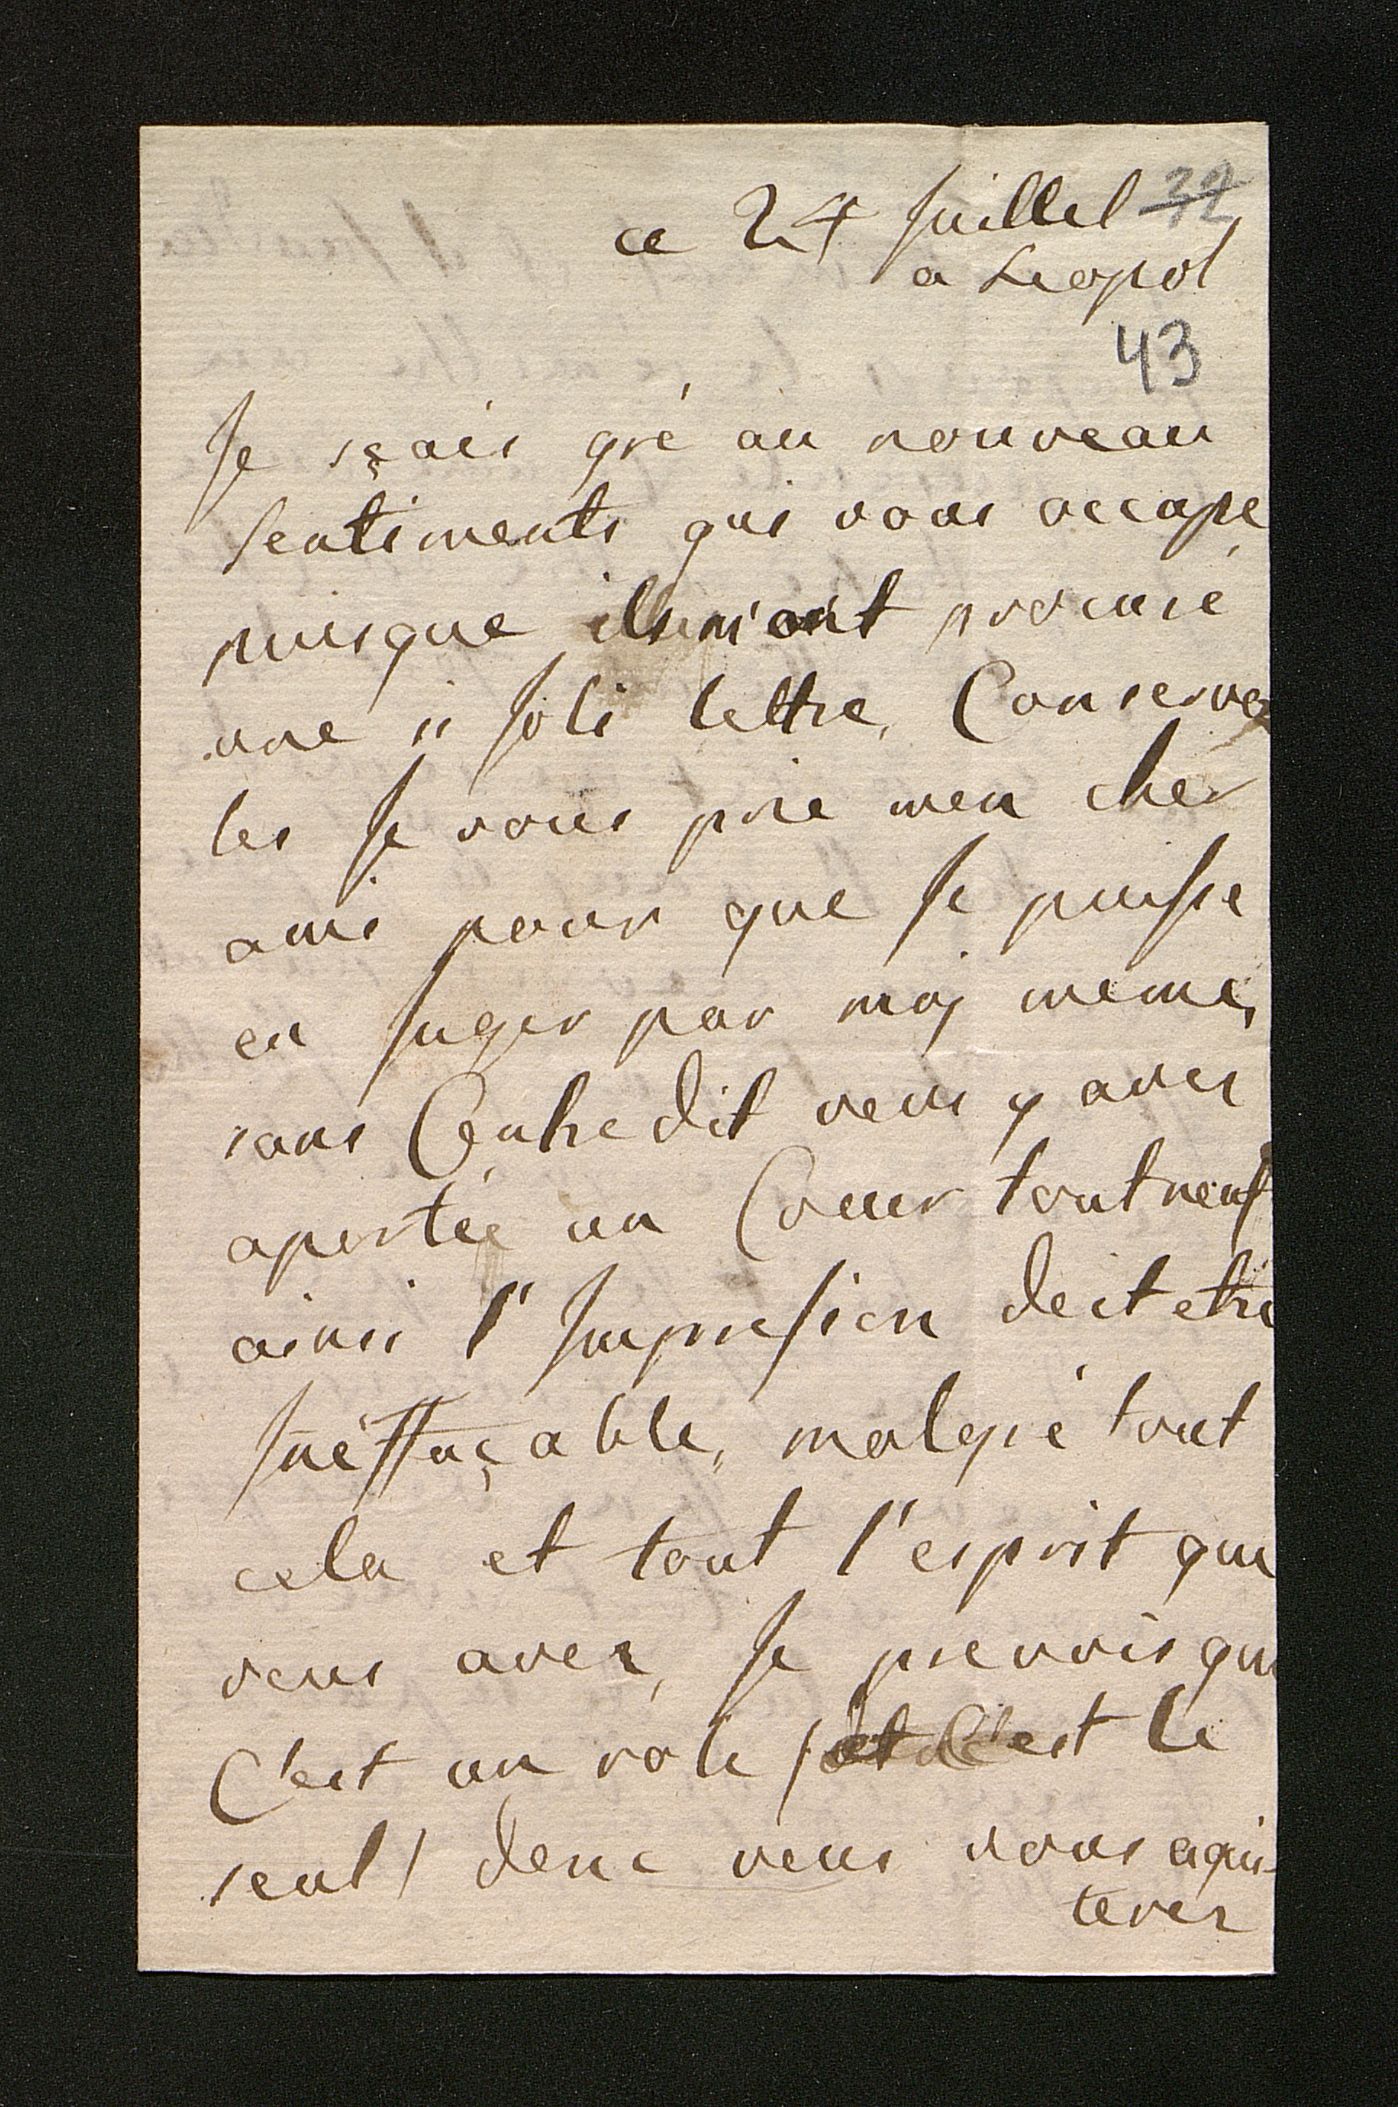 ce 24 Juillet 32
a Leopol
43
Je sçais gré au nouveau
sentiments qui vous occupe,
puisque ils m'ont procuré
une si joli lettre, Conservez
les Je vous prie mon cher
ami pour que Je puisse
en Juger par moj meme,
sans Contredit vous y avez
aportée un Coeur tout neuf
ainsi l'Impression doit etre
Inéffaçable, malgré tout
cela et tout l'esprit que
vous avez, Je prevois que
C'est un role /et c'est le
seul/ donc vous vous aqui-
terez